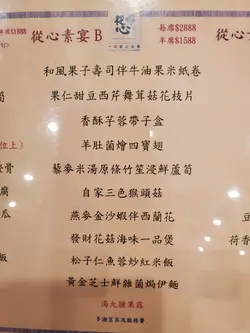 從心素宴 B
每席$2888
半席$1588
和風果子壽司伴牛油果米紙卷
果仁甜豆西芹舞茸菇花枝片
香酥芋蓉帶子盒
羊肚菌燴四寶翅
藜麥米湯原條竹笙浸鮮蘆筍
自家三色猴頭菇
燕麥金沙蝦伴西蘭花
發財花菇海味一品煲
松子仁魚蓉炒紅米飯
黃金芝士鮮雜菌焗伊麵
湯丸糖果露
多謝茗茶及服務費